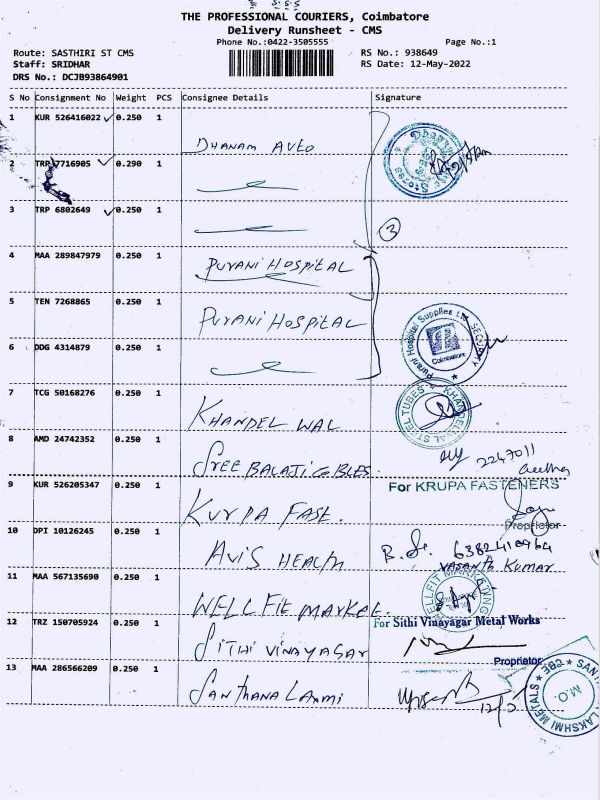 THE PROFESSIONAL COURIERS, Coimbatore
Delivery Runsheet - CMS
Phone No.:0422-3505555
Page No.:1
Route: SASTHIRI ST CMS
Staff: SRIDHAR
DRS No.: DCJB93864901
RS No.: 938649
RS Date: 12-May-2022
S No Consignment No Weight PCS Consignee Details Signature
1 KUR 526416022 0.250 1 DHANAM AUTO
2 TRP 7716905 0.290 1
3 TRP 6802649 0.250 1
3
4 MAA 289847979 0.250 1 PURANI HOSPITAL
5 TEN 7268865 0.250 1 PURANI HOSPITAL
Purani Hospital Supplies Ltd SECURITY
Coimbatore
6 DDG 4314879 0.250 1
7 TCG 50168276 0.250 1 KHANDEL WAL
KHANDELWAL STEEL TUBES
8 AMD 24742352 0.250 1 SREE BALAJI CABLES
2247011
9 KUR 526205347 0.250 1 KURPA FAST.
For KRUPA FASTENERS
Proprietor
10 DPI 10126245 0.250 1 AVIS HEALTH
6382410964
VASANTH KUMAR
11 MAA 567135690 0.250 1 WELL FIT MARKET.
WELLFIT MARKETING
12 TRZ 150705924 0.250 1 SITHI VINAYAGAR
For Sithi Vinayagar Metal Works
Proprietor
13 MAA 286566209 0.250 1 SANTHANA LAXMI
LAKSHMI METALS
M.O.